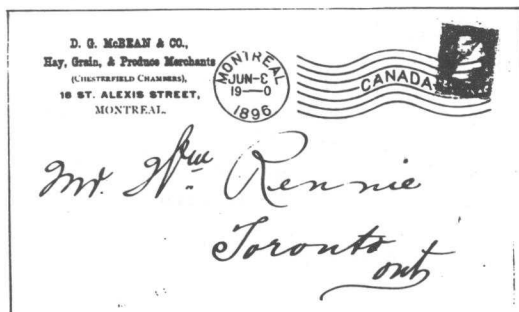 D. G. McBEAN & CO.,
Hay, Grain, & Produce Merchants
(CHESTERFIELD CHAMBERS),
18 ST. ALEXIS STREET,
MONTREAL.
MONTREAL
JUN-
19—0
1896
CANADA
Mr. Wm. Rennie
Toronto
ont